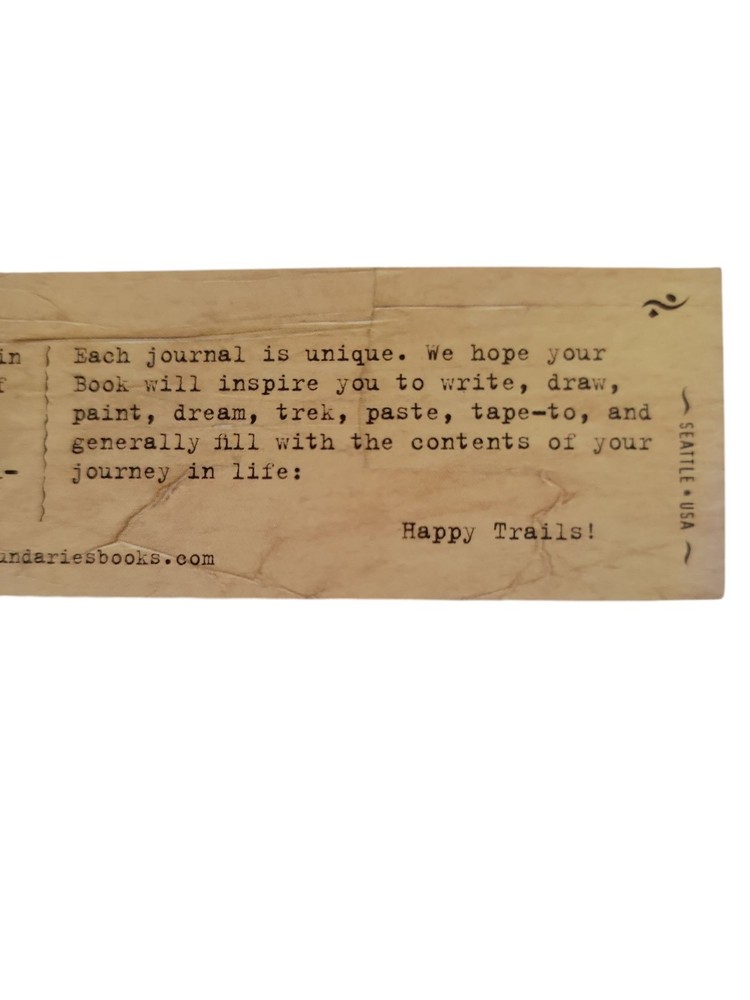 in
Each journal is unique. We hope your
Book will inspire you to write, draw,
paint, dream, trek, paste, tape-to, and
generally fill with the contents of your
journey in life:
Happy Trails!
undariesbooks.com
SEATTLE • USA